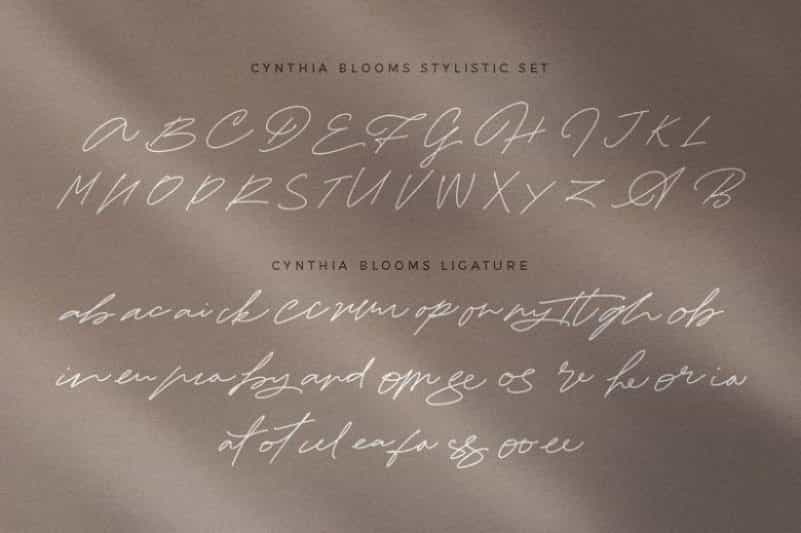 CYNTHIA BLOOMS STYLISTIC SET
A B C D E F G H I J K L
M N O P R S T U V W X Y Z A B
CYNTHIA BLOOMS LIGATURE
ab ac ai ck cc rr um op on ny tt gh ob
in en pr ma by and om ge os re he or ia
at ot ul ea fa ss oo ee